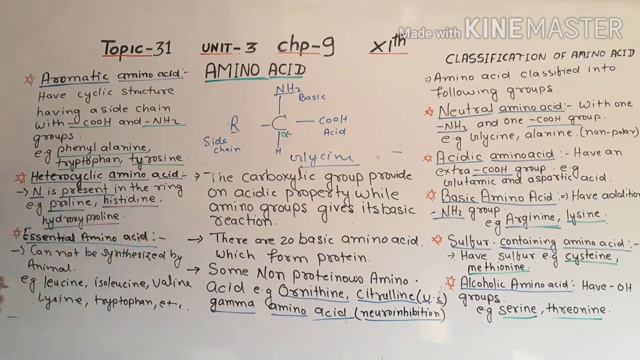 Made with KINEMASTER
TOPIC-31 UNIT-3 chp-9 XIth
AMINO ACID
Aromatic amino acid:-
Have cyclic structure
having a side chain
with -COOH and -NH2
groups.
e.g phenyl alanine,
tryptophan, tyrosine.
Heterocyclic amino acid:-
→ N is present in the ring
e.g proline, histidine
hydroxyproline.
Essential Amino acid:-
→ Can not be synthesized by
Animal.
e.g leucine, isoleucine, valine
lysine, tryptophan, etc,.
NH2
Basic
R - C - COOH
α
Acid
Side
chain
H
Glycine
→ The carboxylic group provide
an acidic property while
amino groups gives its basic
reaction.
→ There are 20 basic amino acid
which form protein.
→ Some Non proteinous Amino
acid e.g Ornithine, Citrulline
gamma amino acid (neuroinhibition)
CLASSIFICATION OF AMINO ACID
→ Amino acid classified into
following groups.
Neutral amino acid:- With one
-NH2 and one -COOH group.
e.g Glycine, alanine. (non-polar)
Acidic aminoacid:- Have an
extra -COOH group. e.g
Glutamic and aspartic acid.
Basic Amino Acid:- Have addition
-NH2 group
e.g Arginine, lysine.
Sulfur containing amino acid:-
→ Have sulfur e.g cysteine,
methionine.
Alcoholic Amino acid:- Have -OH
groups.
e.g serine, threonine.